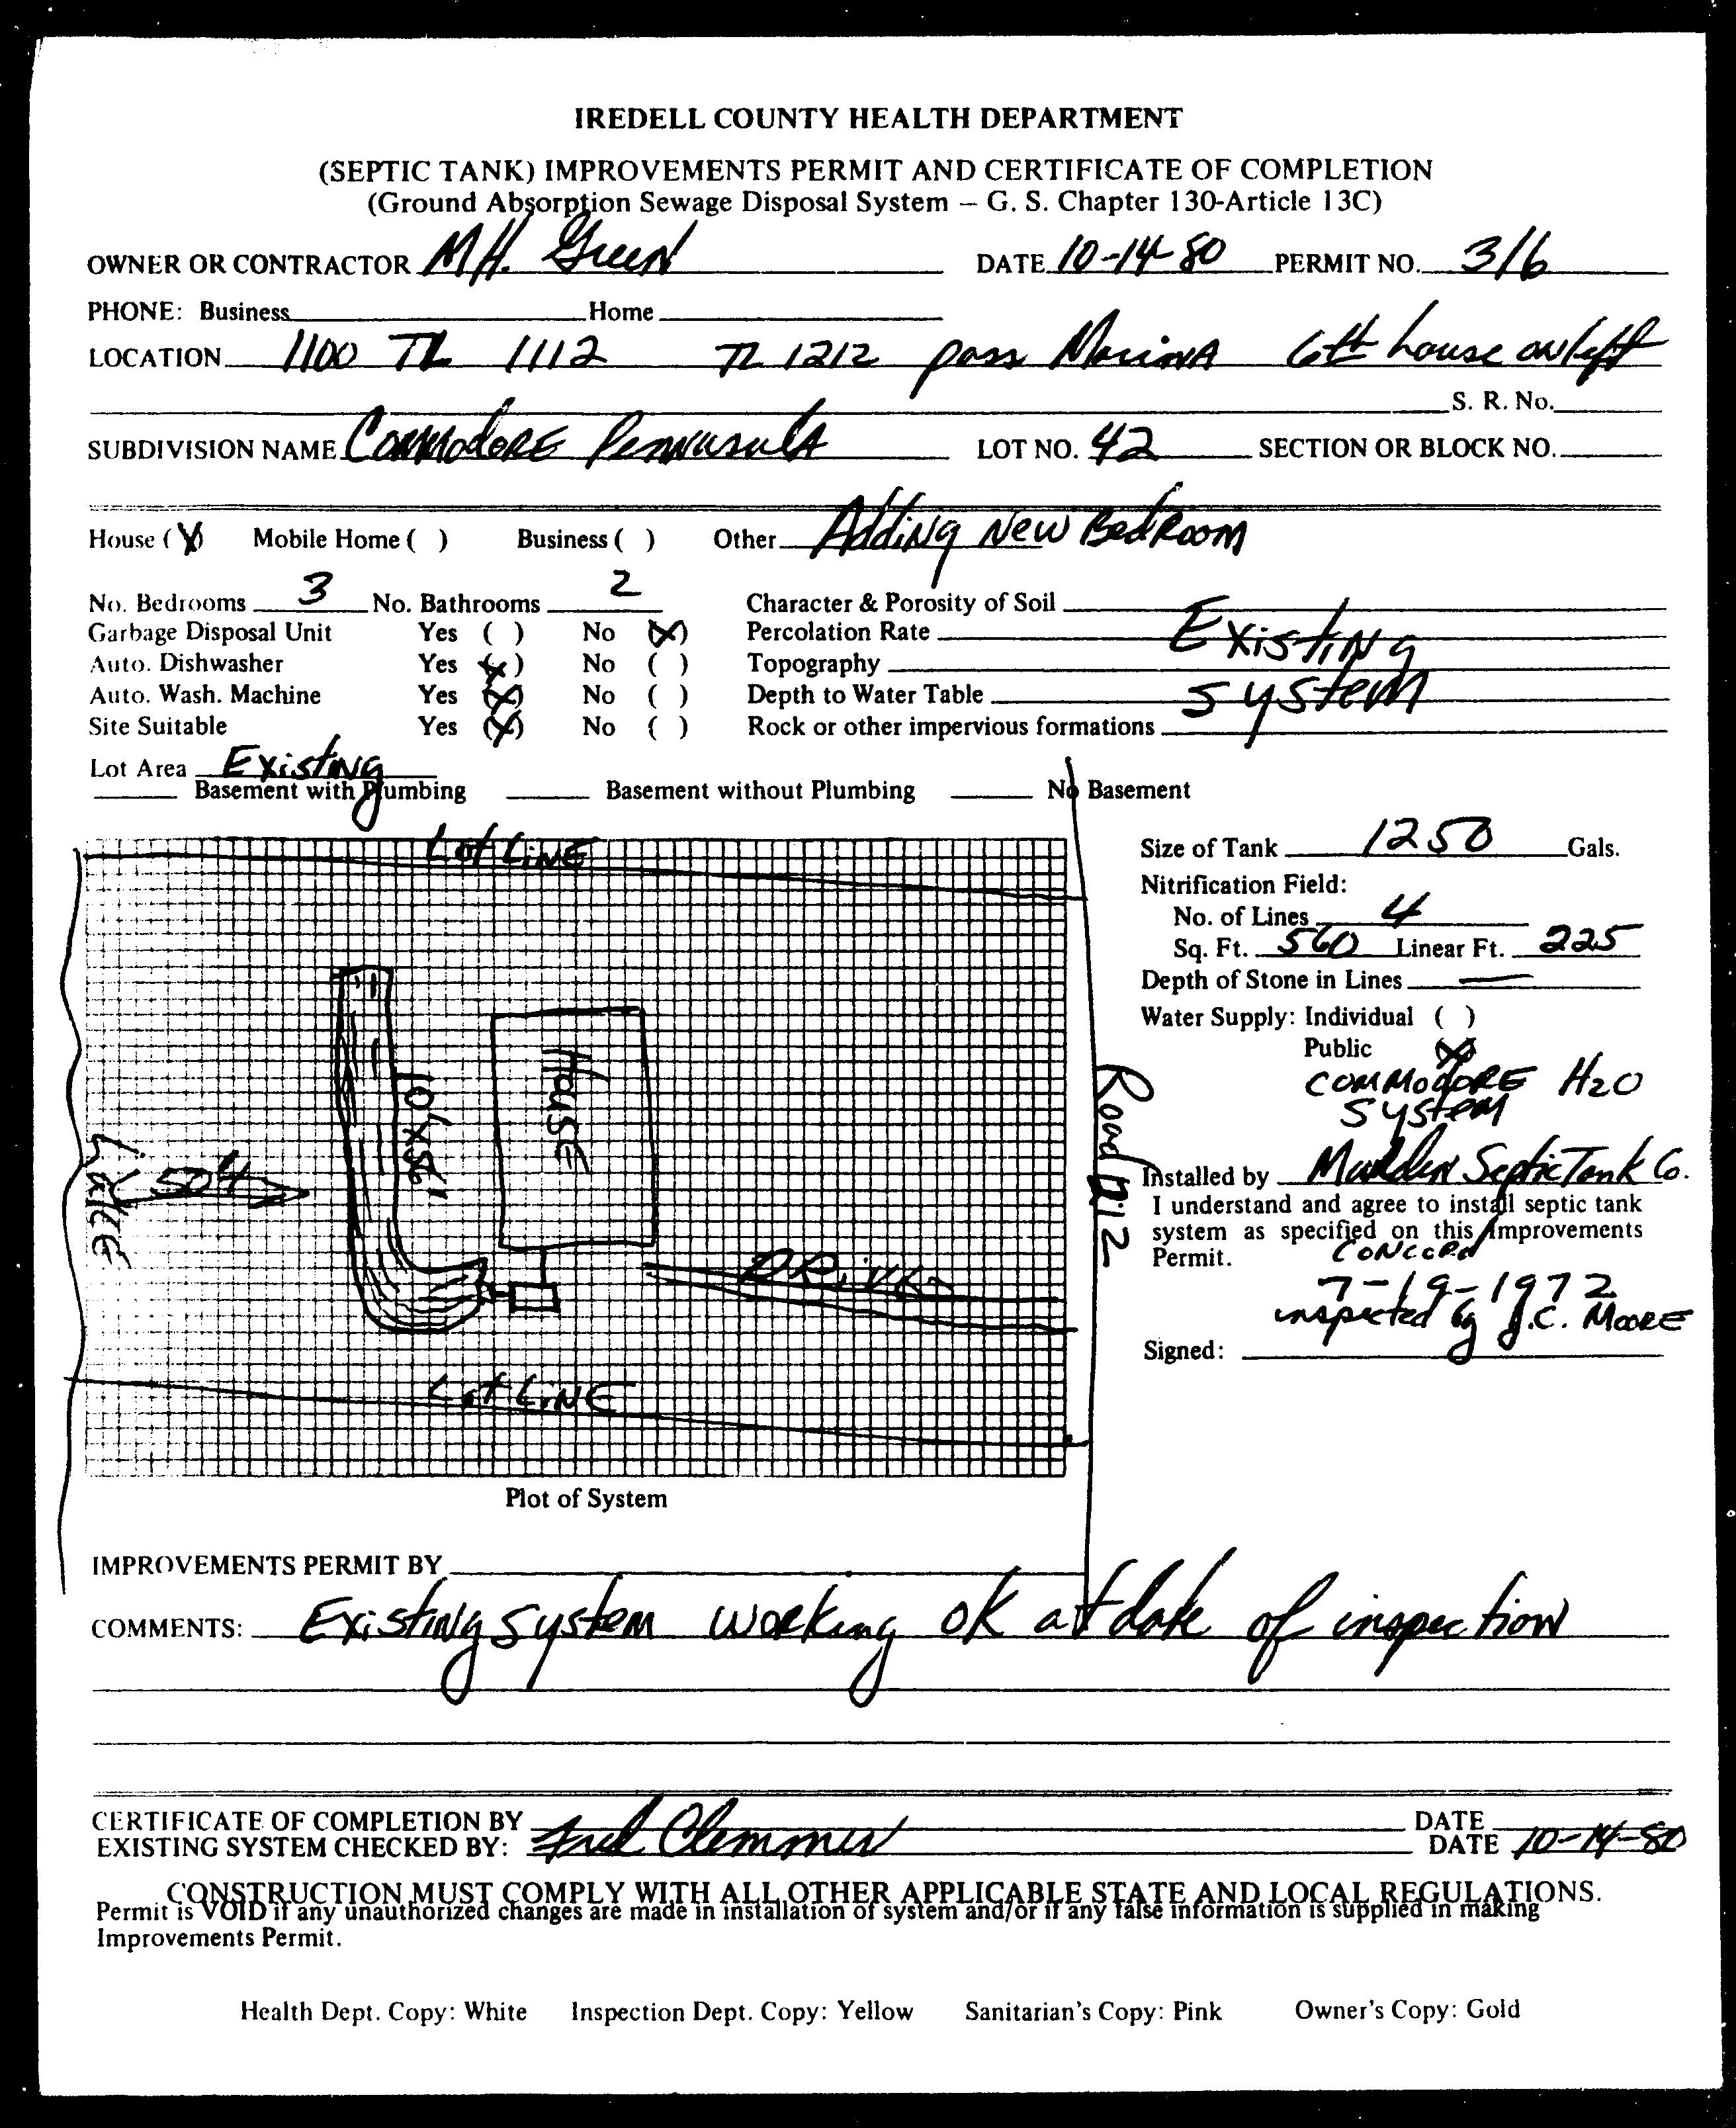 IREDELL COUNTY HEALTH DEPARTMENT
(SEPTIC TANK) IMPROVEMENTS PERMIT AND CERTIFICATE OF COMPLETION
(Ground Absorption Sewage Disposal System — G. S. Chapter 130-Article 13C)
OWNER OR CONTRACTOR M.H. Green DATE 10-14-80 PERMIT NO. 316
PHONE: Business Home
LOCATION 1100 TL 1112 TL 1212 pass MarinA 6th house on left
S. R. No.
SUBDIVISION NAME CommodoRE PeninsulA LOT NO. 42 SECTION OR BLOCK NO.
House (X) Mobile Home ( ) Business ( ) Other Adding New BedRoom
No. Bedrooms 3 No. Bathrooms 2 Character & Porosity of Soil
Garbage Disposal Unit Yes ( ) No (X) Percolation Rate Existing
Auto. Dishwasher Yes (X) No ( ) Topography
Auto. Wash. Machine Yes (X) No ( ) Depth to Water Table System
Site Suitable Yes (X) No ( ) Rock or other impervious formations
Lot Area Existing
Basement with Plumbing Basement without Plumbing No Basement
Lot LiNE
Size of Tank 1250 Gals.
Nitrification Field:
No. of Lines 4
Sq. Ft. 560 Linear Ft. 225
Depth of Stone in Lines —
Water Supply: Individual ( )
Public (X)
COMMODORE H2O
System
House
10x56
LakE
50'
DRive
Road 1212
Installed by Mauldin Septic Tank Co.
I understand and agree to install septic tank
system as specified on this Improvements
Permit. CONCORd
7-19-1972
inspected by J.C. MooRE
Signed:
Lot LiNE
Plot of System
IMPROVEMENTS PERMIT BY
COMMENTS: Existing System working OK at date of inspection
CERTIFICATE OF COMPLETION BY DATE
EXISTING SYSTEM CHECKED BY: Fred Clemmer DATE 10-14-80
CONSTRUCTION MUST COMPLY WITH ALL OTHER APPLICABLE STATE AND LOCAL REGULATIONS.
Permit is VOID if any unauthorized changes are made in installation of system and/or if any false information is supplied in making
Improvements Permit.
Health Dept. Copy: White Inspection Dept. Copy: Yellow Sanitarian's Copy: Pink Owner's Copy: Gold